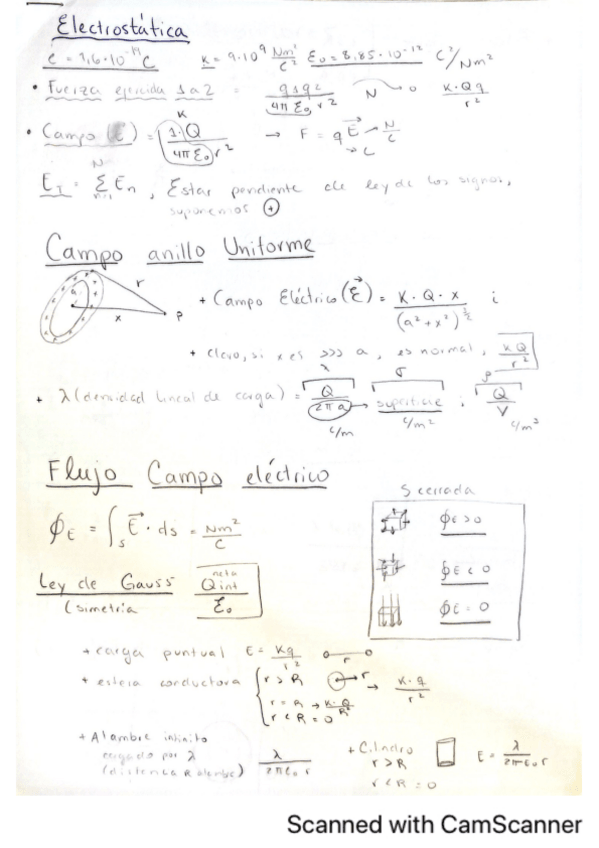 Electrostática
e = 1,6·10⁻¹⁹ C   K = 9·10⁹ Nm²/C²   ε₀ = 8,85·10⁻¹² C²/Nm²
• Fuerza ejercida 1 a 2 = q1q2/4πε₀ r²   N → o   K·Qq/r²
• Campo (E) = 1·Q/4πε₀ r²   K   → F = q E⃗ → N/C → C
E_T = Σ_{n=1}^{N} E_n, Estar pendiente de ley de los signos,
suponemos ⊕
Campo anillo Uniforme
a   r   x   P
+ Campo Eléctrico (E⃗) = K·Q·x/(a²+x²)^{3/2} i
+ Claro, si x es >>> a, es normal, KQ/r²
λ   σ   ρ
+ λ (densidad lineal de carga) = Q/2πa → superficie ; Q/V
C/m   C/m²   C/m³
Flujo Campo eléctrico
S cerrada
ϕ_E = ∫_S E⃗ · ds = Nm²/C
ϕE > 0
ϕE < 0
ϕE = 0
Ley de Gauss   Qint neta/ε₀
(simetría
+ carga puntual   E = Kq/r²   r
+ esfera conductora   r > R   → r → K·q/r²
r = R → K·Q/R²
r < R = 0
+ Alambre infinito
cargado por λ   λ/2πε₀ r
(distancia R alambre)
+ Cilindro   E = λ/2πε₀ r
r > R
r < R = 0
Scanned with CamScanner